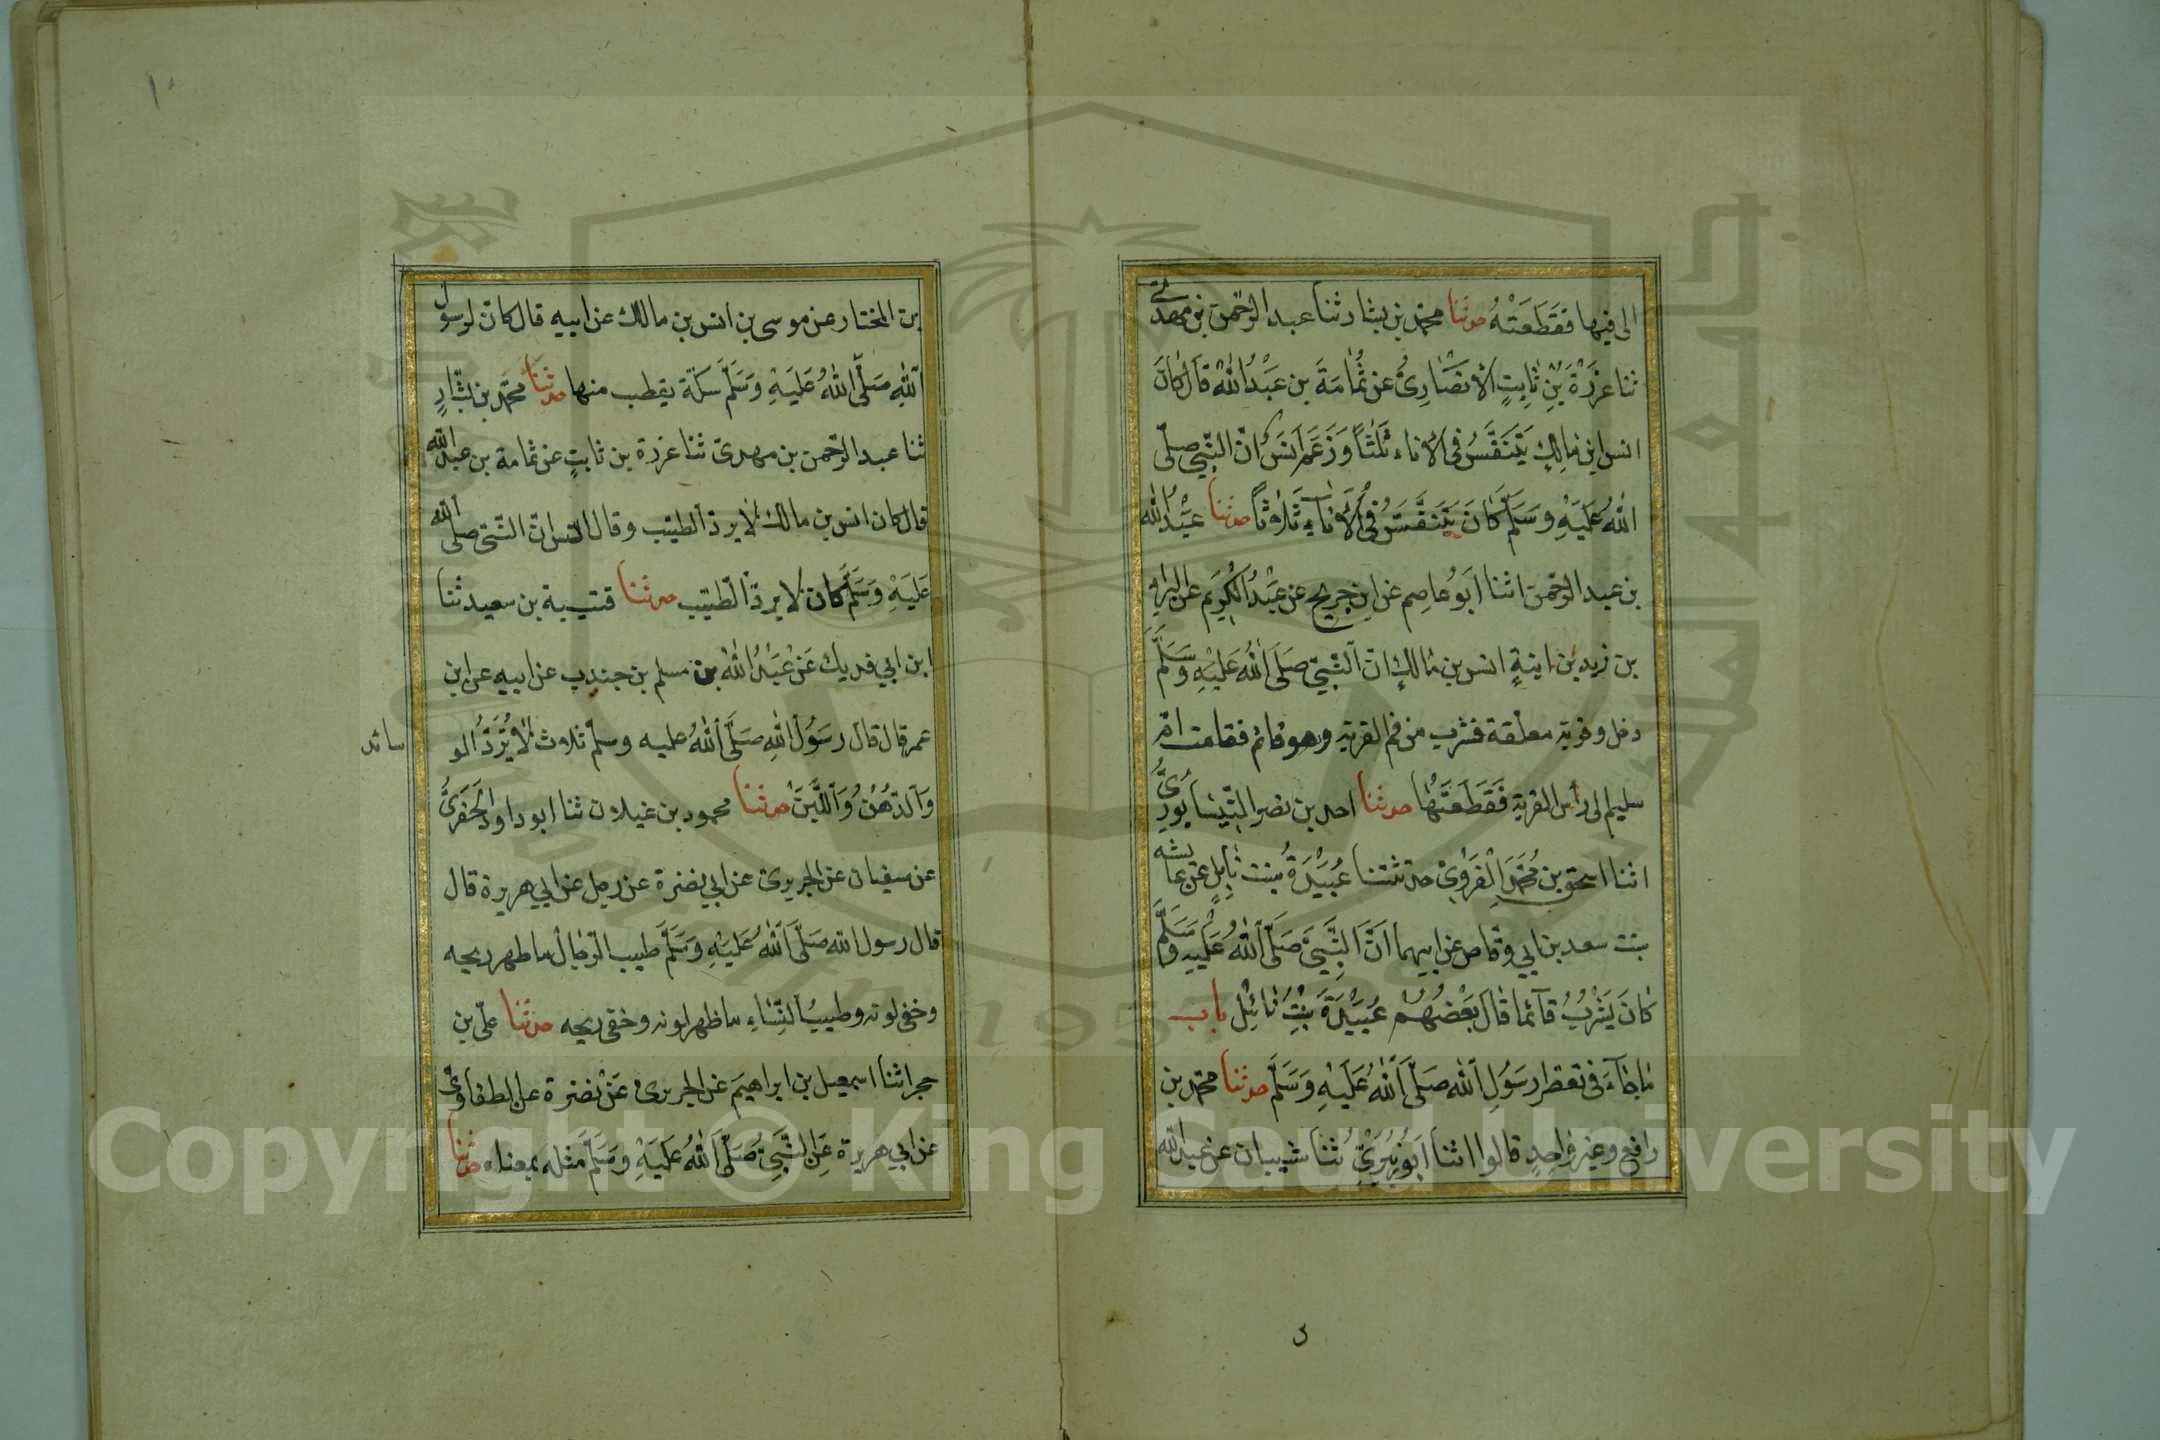 الى فيها فَقَطَعَتْهُ حدثنا محمّد بن بشار ثنا عبد الرّحمن بن مهدي
ثنا عزرَة بْنِ ثابِتٍ الأنصَارِىُّ عن ثُمامَةَ بن عَبْدُ اللهْ قاَل كانَ
انس ابن مالِكٍ يَتَنَفَّسُ فى الأناء ثَلثاً وَزَعَمَ اَنَسٌ انّ النّبىّ صلّى
اللهُ عَلَيْهِ وسَلَّمَ كَانَ يَتَنَفَّسُ فى الأنآءِ ثَلاثاً حدثنا عَبْدُ الله
بن عبد الرّحمن اثنا اَبوُعاصِم عن ابن جريج عن عَبْدُ الْكَرِيَم عن البراء
بن زيد بن ابنةِ انس بن مالكٍ انّ النّبىّ صَلَى اللهُ عَلَيْهِ وَسَلَّمَ
دخل وقربة معلّقة فشرب من فم القربة وهو قائم فقامت امّ
سليم الى رأس القربة فَقَطَعَتْها حدثنا احمد بن نصر النّيسابورِىُّ
اثنا اسحق بن مُحَمّدَ الْفَرَوِىْ حدثتنا عُبَيْدَةُ بنت نابِلٍ عن عائشه
بنت سعد بن ابي وقاص عن ابيها اَنَّ النِّبَيّ صَلّى اَللهُ عَلَيْهِ وَسَلَّمَ
كانَ يَشْرَبُ قآئما قالَ بَعْضُهُمْ عُبَيْدَةَ بنْتِ نائِلِ باب
ماجآءَ فى تعطر رسَوُلِ اَلله صَلّى اَللهُ عَلَيْهِ وَسَلَّمَ حدثنا محمّد بن
رافع وغير واحِدٍ قالوا اثنا اَبوُ زُبَيْرىِّ ثنا شيبان عن عبد الله
د
١٠
بن المختار عن موسى بن انس بن مالك عن ابيه قال كانَ لرسول
اَللهِ صَلّى اللهُ عَلَيَهْ وَسَلّمَ سكّة يتطب منها حدثنا محمّد بن بشّارٍ
ثنا عبد الرّحمن بن مهدى ثنا عزرة بن ثابتٍ عن ثمامة بن عبد الله
قال كان انس بن مالك لا يردّ الطيّب وقال انس انّ النّبىّ صلّى الله
عَلَيَهْ وَسَلَّمَ كان لا يردّ الطّيّب حدثنا قتيبة بن سعيد ثنا
ابن ابي فديك عَنْ عَبْدُ اللهْ بن مسلم بن جندب عن ابيه عن ابن
عمر قال قال رسَوُل اَللهِ صَلَّى اَللهُ عليه وسلّم ثلاث لا يُرَدُّ الو
سائد
وَالدّهُنُ وَالَلَّبَنْ حدثنا محمود بن غيلان ثنا ابو داود الحَفَرىَّ
عن سفيان عن الجريرىّ عن ابي نضرة عن رجل عن ابي هريرة قال
قال رسول الله صَلّى اَللهُ عَلَيْهِ وَسَلَّمَ طيب الرّجال ما ظهر ريحه
وخفى لونه وطيبُ النّساءِ ما ظهر لونه وخفى ريحه حدثنا علىّ بن
حجر اثنا اسمعيل بن ابراهيمَ عن الجريرى عَنْ نضرة عن الطفاوىّ
عن ابي هريرة عَنِ النّبَىّ صَلّى اَللهُ عَلَيَهْ وَسَلَّمَ مثله بمعناه حدثنا
Copyright © King Saud University
1957